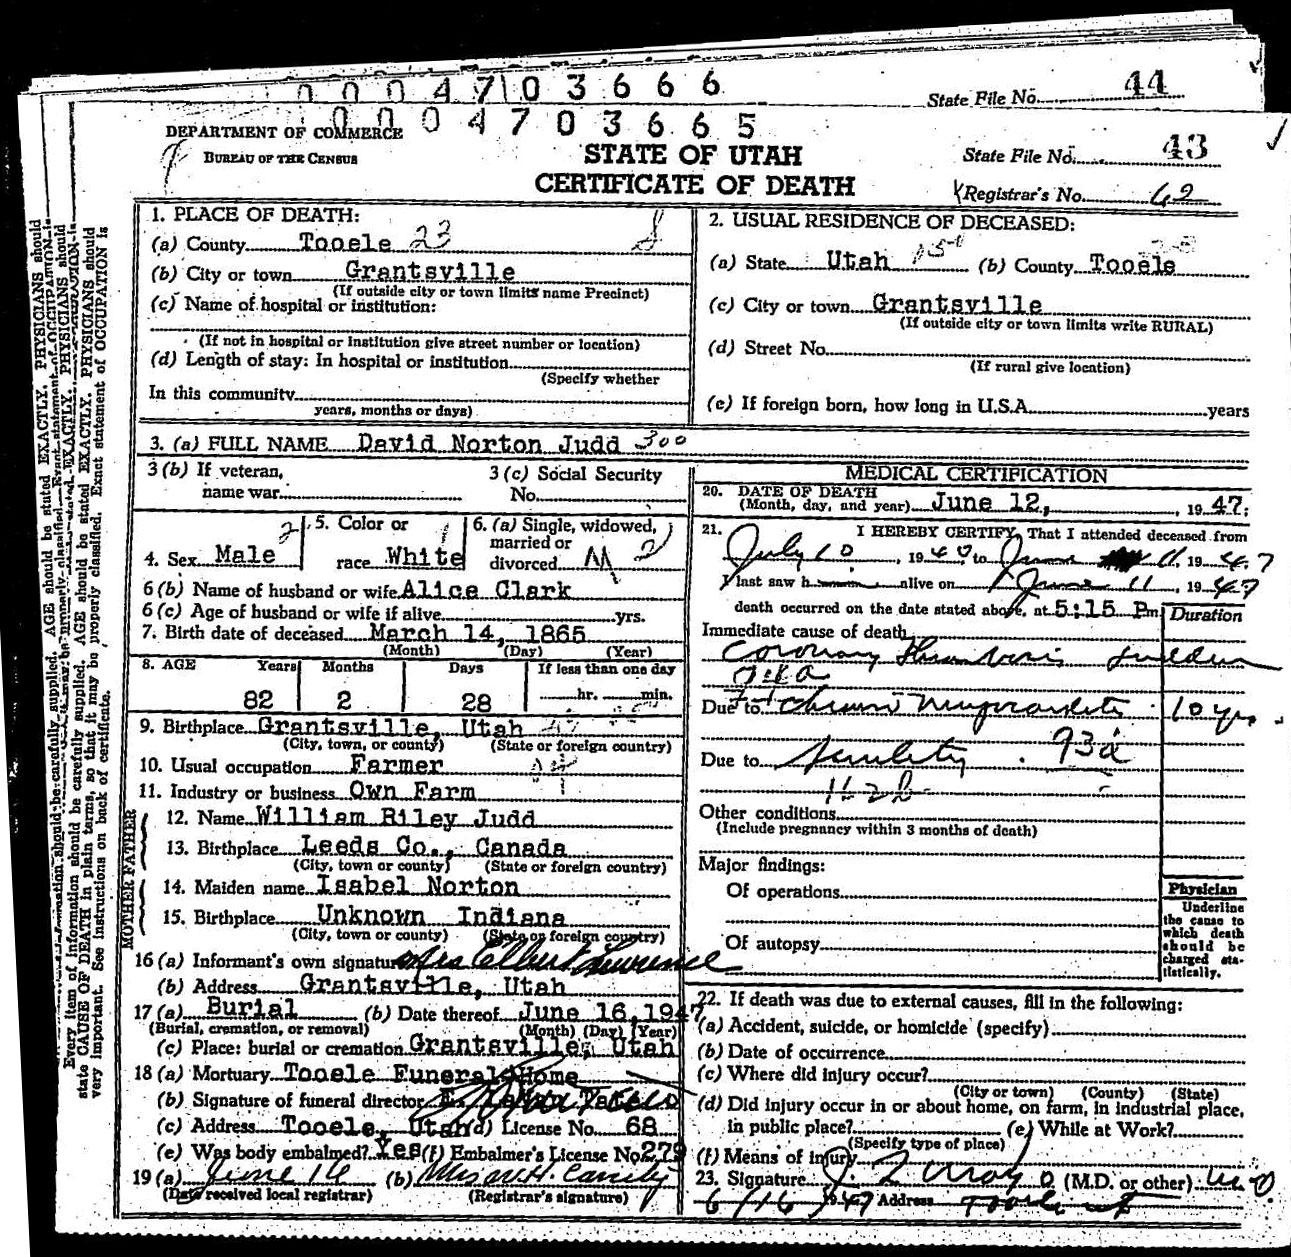 0004703666
State File No. 44
0004703665
DEPARTMENT OF COMMERCE
BUREAU OF THE CENSUS
STATE OF UTAH
CERTIFICATE OF DEATH
State File No. 43
Registrar's No. 62
1. PLACE OF DEATH:
(a) County Tooele 23
(b) City or town Grantsville
(If outside city or town limits name Precinct)
(c) Name of hospital or institution:
(If not in hospital or Institution give street number or location)
(d) Length of stay: In hospital or institution
(Specify whether
In this community
years, months or days)
2. USUAL RESIDENCE OF DECEASED:
(a) State Utah (b) County Tooele
(c) City or town Grantsville
(If outside city or town limits write RURAL)
(d) Street No.
(If rural give location)
(e) If foreign born, how long in U.S.A. years
3. (a) FULL NAME David Norton Judd 300
3 (b) If veteran,
name war
3 (c) Social Security
No.
4. Sex Male 2
5. Color or
race White 1
6. (a) Single, widowed,
married or
divorced M 2
6 (b) Name of husband or wife Alice Clark
6 (c) Age of husband or wife if alive yrs.
7. Birth date of deceased March 14, 1865
(Month) (Day) (Year)
8. AGE Years Months Days If less than one day
82 2 28 hr. min.
9. Birthplace Grantsville, Utah
(City, town, or county) (State or foreign country)
10. Usual occupation Farmer
11. Industry or business Own Farm
FATHER
12. Name William Riley Judd
13. Birthplace Leeds Co., Canada
(City, town or county) (State or foreign country)
MOTHER
14. Maiden name Isabel Norton
15. Birthplace Unknown Indiana
(City, town or county) (State or foreign country)
16 (a) Informant's own signature Mrs Elbert Lawrence
(b) Address Grantsville, Utah
17 (a) Burial (b) Date thereof June 16, 1947
(Burial, cremation, or removal) (Month) (Day) (Year)
(c) Place: burial or cremation Grantsville, Utah
18 (a) Mortuary Tooele Funeral Home
(b) Signature of funeral director
(c) Address Tooele, Utah (d) License No. 68
(e) Was body embalmed? Yes (f) Embalmer's License No. 279
19 (a) June 16 (b)
(Date received local registrar) (Registrar's signature)
MEDICAL CERTIFICATION
20. DATE OF DEATH
(Month, day, and year) June 12, , 19 47;
21. I HEREBY CERTIFY, That I attended deceased from
July 10 , 19 40 to June 11, 19 47
I last saw h im alive on June 11 , 19 47
death occurred on the date stated above, at 5:15 Pm. Duration
Immediate cause of death
Coronary Thrombosis Sudden
Due to Chronic Myocarditis 10 yrs.
Due to Senility 93d
Other conditions
(Include pregnancy within 3 months of death)
Major findings:
Of operations
Of autopsy
Physician
Underline
the cause to
which death
should be
charged sta-
tistically.
22. If death was due to external causes, fill in the following:
(a) Accident, suicide, or homicide (specify)
(b) Date of occurrence
(c) Where did injury occur?
(City or town) (County) (State)
(d) Did injury occur in or about home, on farm, in industrial place,
in public place? (e) While at Work?
(Specify type of place)
(f) Means of injury
23. Signature (M.D. or other) M.D.
6/16 1947 Address Tooele Ut
Every item of information should be carefully supplied. AGE should be stated EXACTLY. PHYSICIANS should
state CAUSE OF DEATH in plain terms, so that it may be properly classified. Exact statement of OCCUPATION is
very important. See instructions on back of certificate.